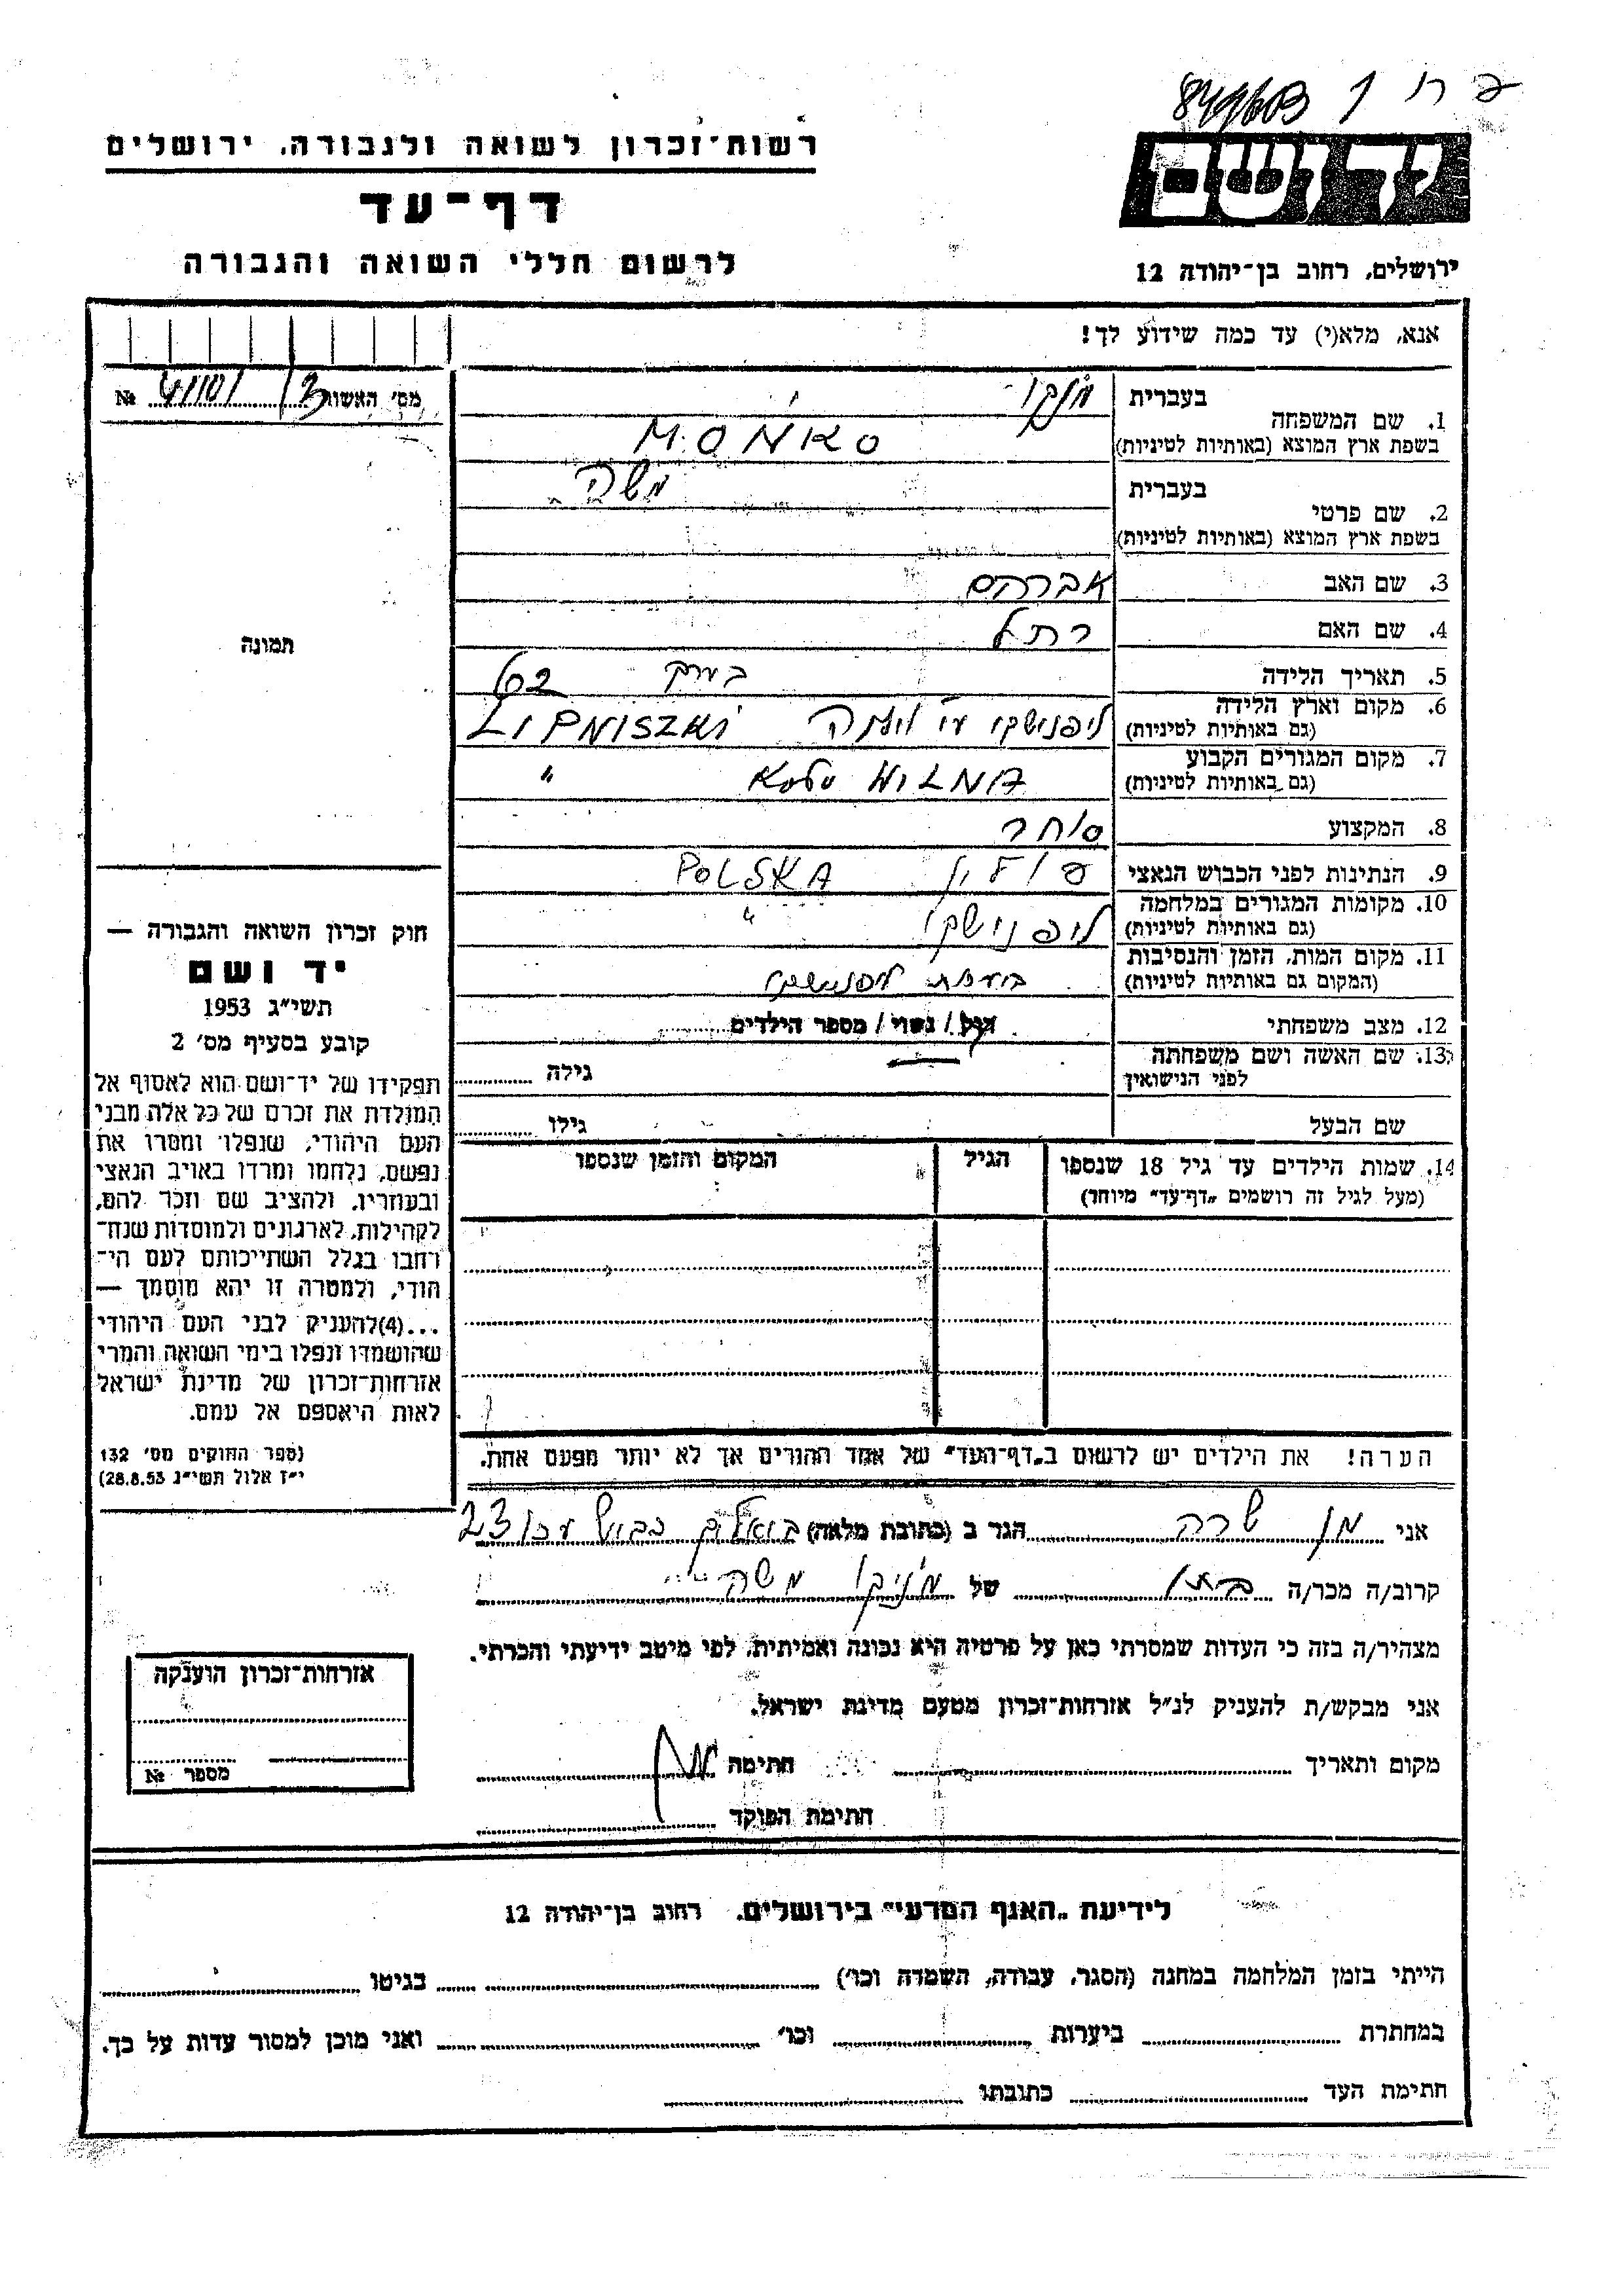 849603
יד ושם
ירושלים, רחוב בן־יהודה 12
רשות־זכרון לשואה ולגבורה, ירושלים
דף־עד
לרשום חללי השואה והגבורה
אנא, מלא(י) עד כמה שידוע לך!
מס׳ האשות №
1. שם המשפחה
בעברית
בשפת ארץ המוצא (באותיות לטיניות) MONKO
2. שם פרטי
בעברית משה
בשפת ארץ המוצא (באותיות לטיניות)
3. שם האב אברהם
4. שם האם רחל
5. תאריך הלידה בערך 62
6. מקום וארץ הלידה ליפנישקי ע״י וילנה LIPNISZKI
(גם באותיות לטיניות)
7. מקום המגורים הקבוע
(גם באותיות לטיניות) KOŁO WILNA "
8. המקצוע סוחר
9. הנתינות לפני הכבוש הנאצי פולין POLSKA
10. מקומות המגורים במלחמה
(גם באותיות לטיניות) ליפנישקי "
11. מקום המות, הזמן והנסיבות
(המקום גם באותיות לטיניות) ליפנישקי
12. מצב משפחתי רווק / נשוי / מספר הילדים
13. שם האשה ושם משפחתה
לפני הנישואין גילה
שם הבעל גילו
14. שמות הילדים עד גיל 18 שנספו הגיל המקום והזמן שנספו
(מעל לגיל זה רושמים „דף־עד״ מיוחד)
תמונה
חוק זכרון השואה והגבורה —
יד ושם
תשי״ג 1953
קובע בסעיף מס׳ 2
תפקידו של יד־ושם הוא לאסוף אל
המולדת את זכרם של כל אלה מבני
העם היהודי, שנפלו ומסרו את
נפשם, נלחמו ומרדו באויב הנאצי
ובעוזריו, ולהציב שם וזכר להם,
לקהילות, לארגונים ולמוסדות שנח־
רחבו בגלל השתייכותם לעם הי־
הודי, ולמטרה זו יהא מוסמך —
...(4)להעניק לבני העם היהודי
שהושמדו ונפלו בימי השואה והמרי
אזרחות־זכרון של מדינת ישראל
לאות היאספם אל עמם.
(ספר החוקים מס׳ 132
י״ז אלול תשי״ג 28.8.53)
הערה! את הילדים יש לרשום ב„דף־העד״ של אחד ההורים אך לא יותר מפעם אחת.
אני מן שרה הגר ב (כתובת מלאה) 23
קרוב/ה מכר/ה בת של מונקו משה
מצהיר/ה בזה כי העדות שמסרתי כאן על פרטיה היא נכונה ואמיתית, לפי מיטב ידיעתי והכרתי.
אני מבקש/ת להעניק לנ״ל אזרחות־זכרון מטעם מדינת ישראל.
מקום ותאריך חתימה
חתימת הפוקד
אזרחות־זכרון הוענקה
מספר №
לידיעת „האגף המדעי״ בירושלים, רחוב בן־יהודה 12
הייתי בזמן המלחמה במחנה (הסגר, עבודה, השמדה וכו׳) בגיטו
במחתרת ביערות וכו׳ ואני מוכן למסור עדות על כך.
חתימת העד כתובתו